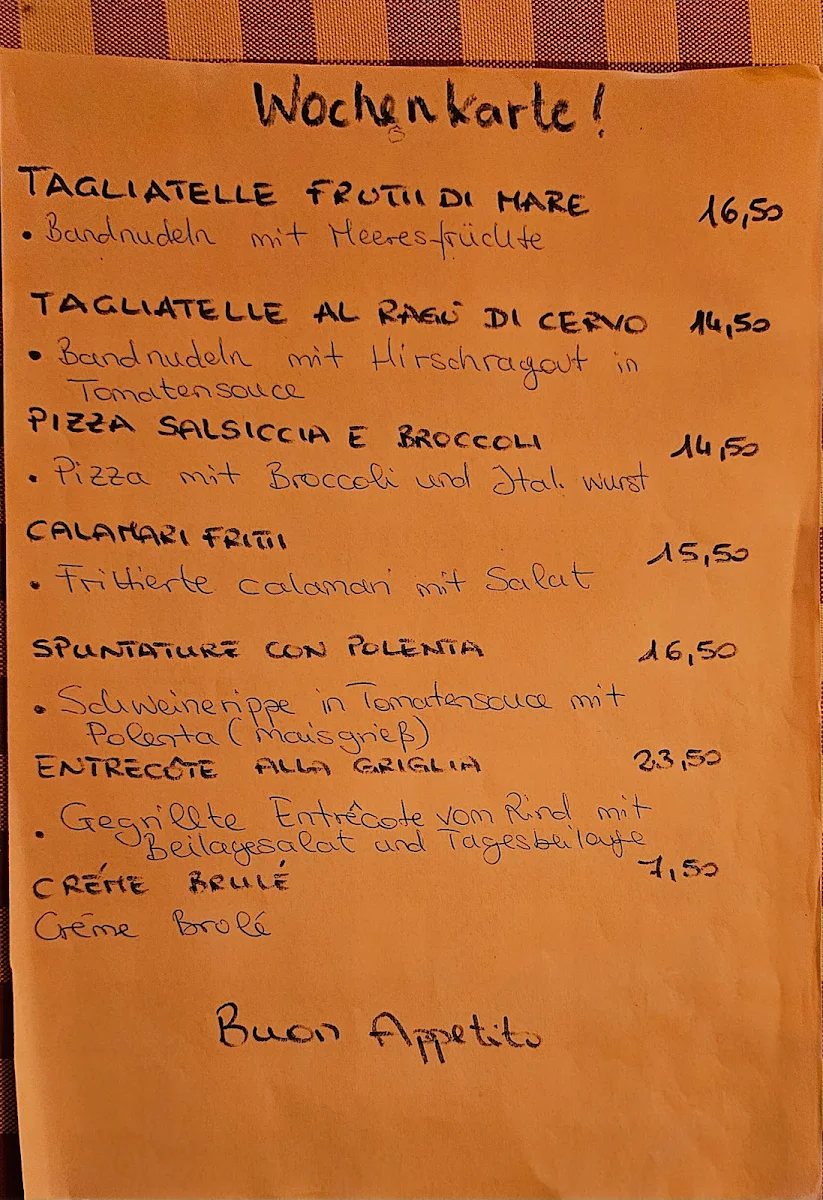 Wochenkarte!
TAGLIATELLE FRUTTI DI MARE 16,50
• Bandnudeln mit Meeresfrüchte
TAGLIATELLE AL RAGÚ DI CERVO 14,50
• Bandnudeln mit Hirschragout in
Tomatensouce
PIZZA SALSICCIA E BROCCOLI 14,50
• Pizza mit Broccoli und Ital. wurst
CALAMARI FRITTI 15,50
• Frittierte calamari mit Salat
SPUNTATURE CON POLENTA 16,50
• Schweinerippe in Tomatensouce mit
Polenta (Maisgrieß)
ENTRECÔTE ALLA GRIGLIA 23,50
• Gegrillte Entrêcote vom Rind mit
Beilagesalat und Tagesbeilage
CRÉME BRULÉ 7,50
Créme Brolé
Buon Appetito